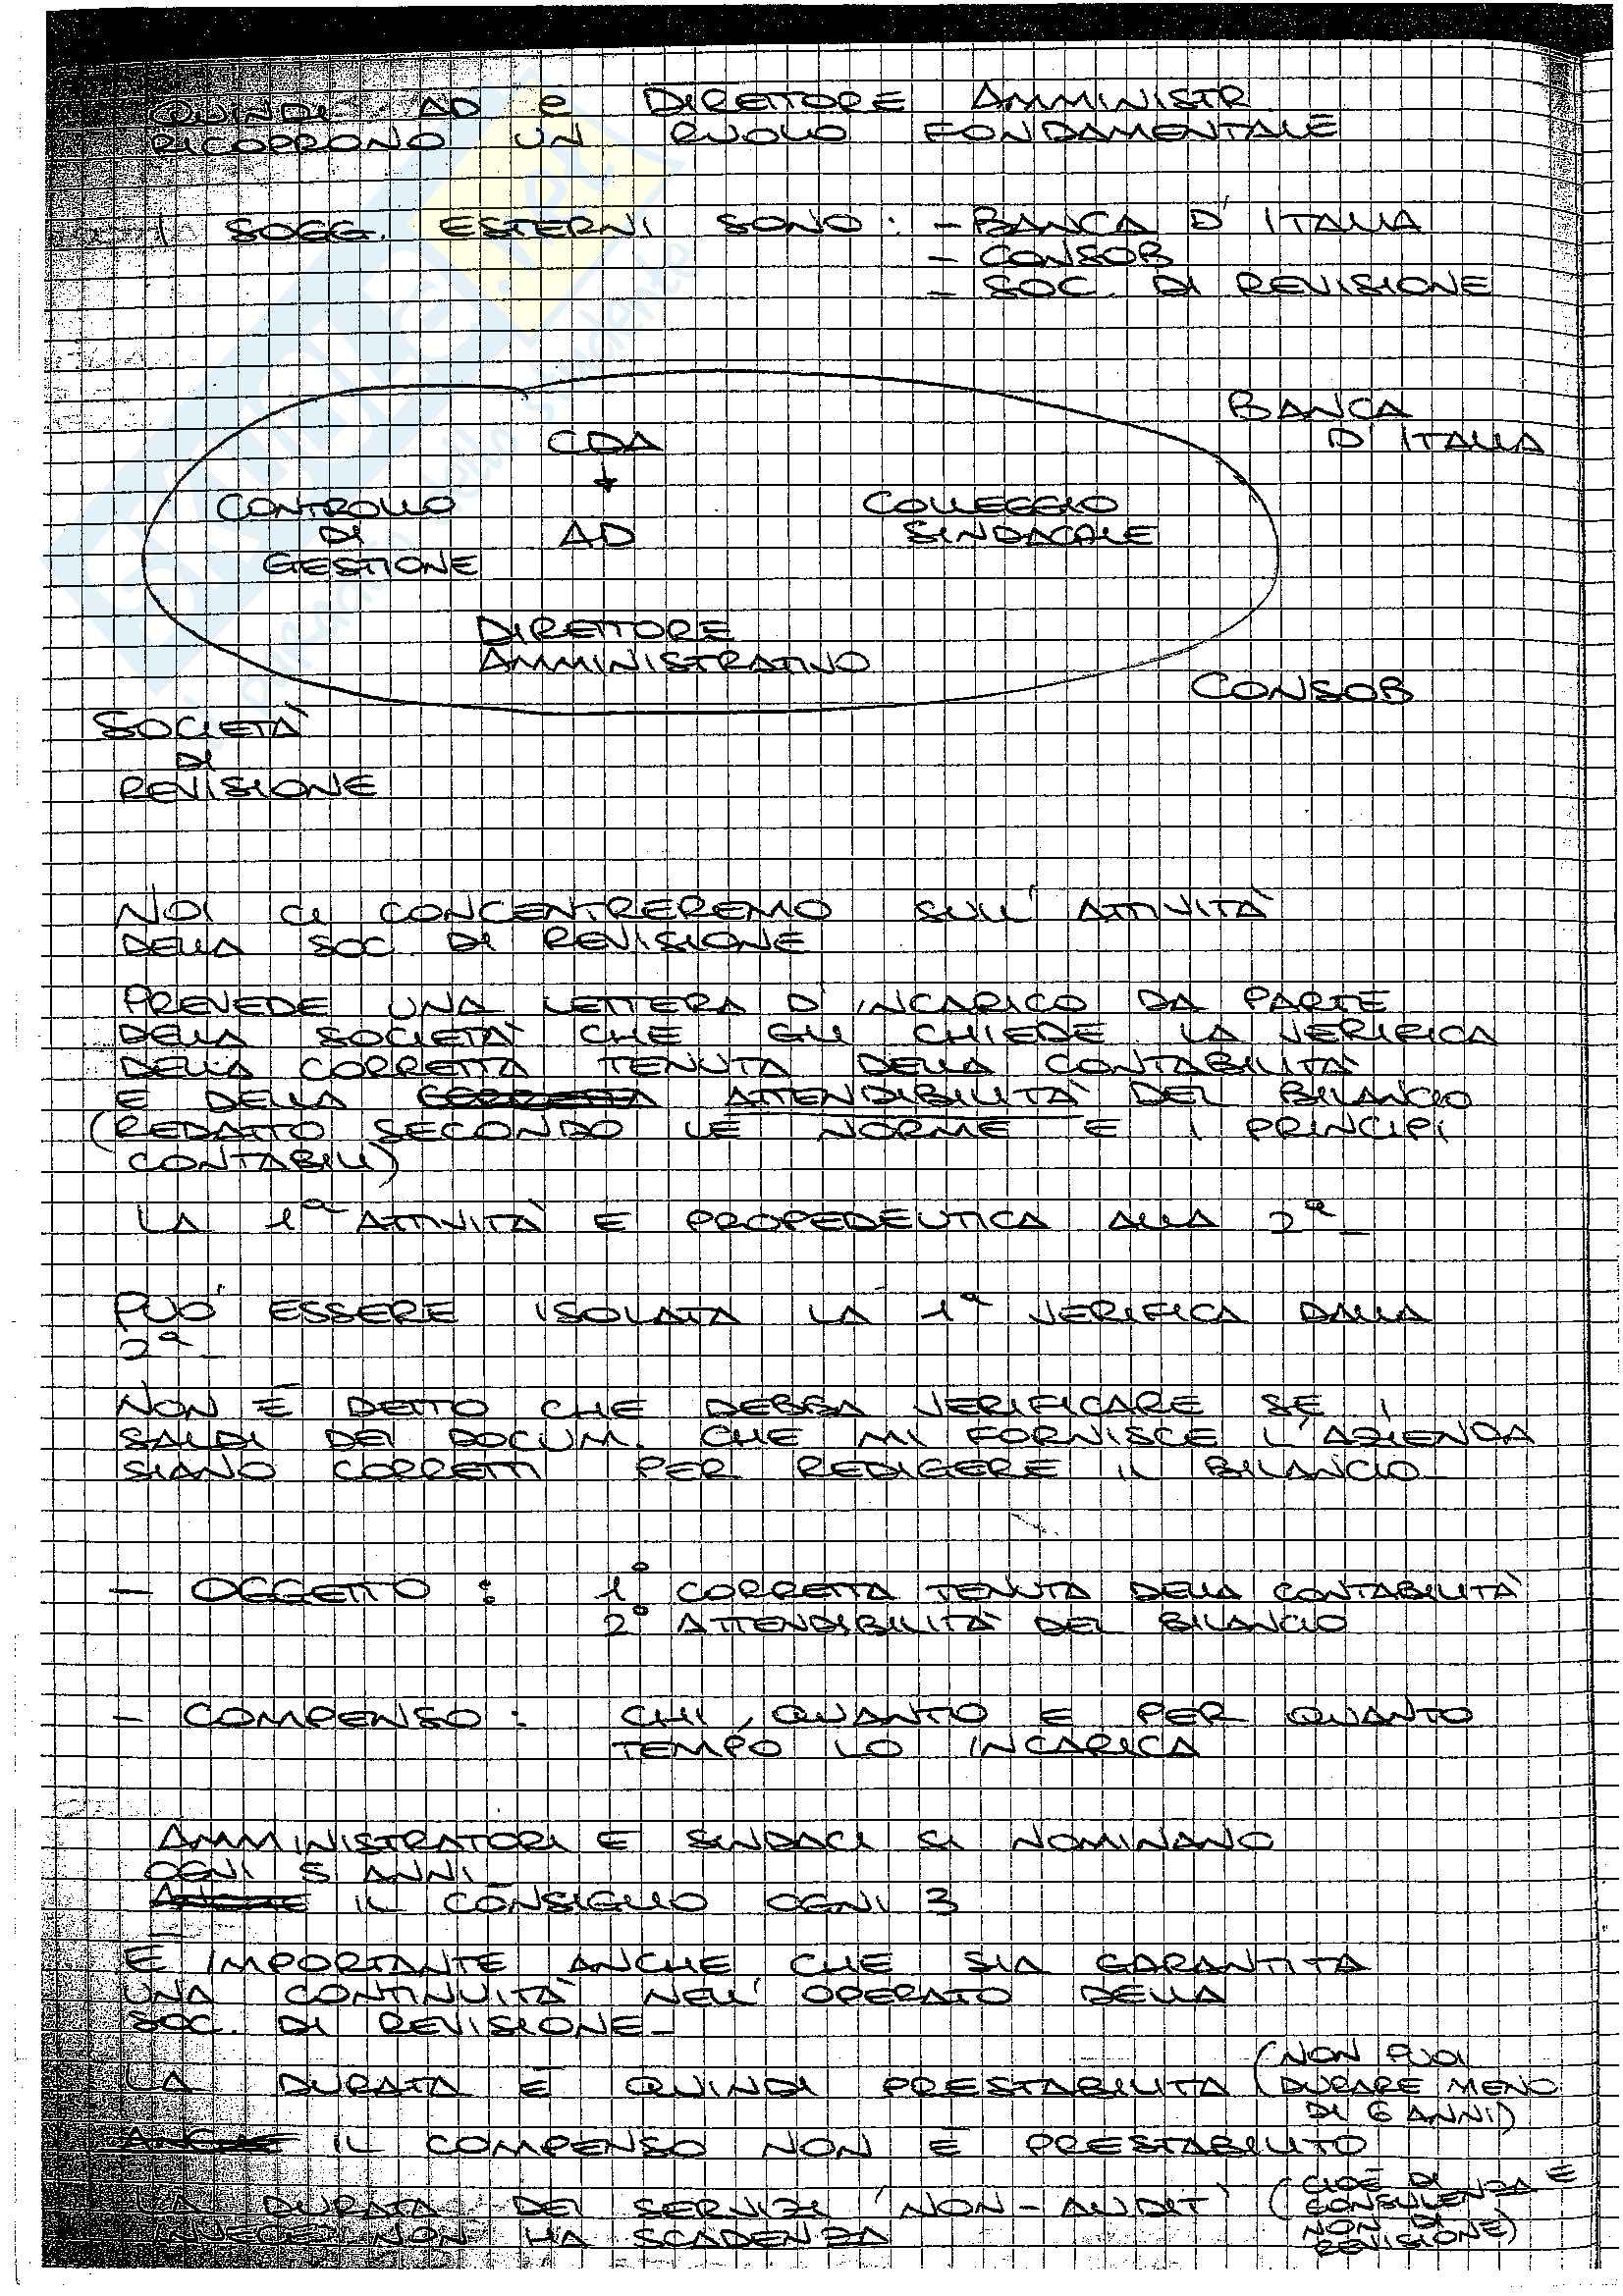 QUINDI AD e DIRETTORE AMMINISTR.
RICOPRONO UN RUOLO FONDAMENTALE
I SOGG. ESTERNI SONO: - BANCA D'ITALIA
- CONSOB
- SOC. DI REVISIONE
BANCA
D'ITALIA
CDA
CONTROLLO
DI
GESTIONE
AD
COLLEGGIO
SINDACALE
DIRETTORE
AMMINISTRATIVO
CONSOB
SOCIETÀ
DI
REVISIONE
NOI CI CONCENTREREMO SULL'ATTIVITÀ
DELLA SOC. DI REVISIONE
PREVEDE UNA LETTERA D'INCARICO DA PARTE
DELLA SOCIETÀ CHE GLI CHIEDE LA VERIFICA
DELLA CORRETTA TENUTA DELLA CONTABILITÀ
E DELLA CORRETTA ATTENDIBILITÀ DEL BILANCIO
(REDATTO SECONDO LE NORME E I PRINCIPI
CONTABILI)
LA 1ª ATTIVITÀ È PROPEDEUTICA ALLA 2ª-
PUO' ESSERE ISOLATA LA 1ª VERIFICA DALLA
2ª-
NON È DETTO CHE DEBBA VERIFICARE SE I
SALDI DEI DOCUM. CHE MI FORNISCE L'AZIENDA
SIANO CORRETTI PER REDIGERE IL BILANCIO-
- OGGETTO: 1° CORRETTA TENUTA DELLA CONTABILITÀ
2° ATTENDIBILITÀ DEL BILANCIO
- COMPENSO: CHI, QUANTO E PER QUANTO
TEMPO LO INCARICA
AMMINISTRATORI E SINDACI SI NOMINANO
OGNI 5 ANNI
ANCHE IL CONSIGLIO OGNI 3
È IMPORTANTE ANCHE CHE SIA GARANTITA
UNA CONTINUITÀ NELL'OPERATO DELLA
SOC. DI REVISIONE-
LA DURATA È QUINDI PRESTABILITA (NON PUOI
DURARE MENO
DI 6 ANNI)
ANCHE IL COMPENSO NON È PRESTABILITO
LA DURATA DEI SERVIZI 'NON-AUDIT' (CIOÈ DI
CONSULENZA E
NON DI
REVISIONE)
INVECE NON HA SCADENZA